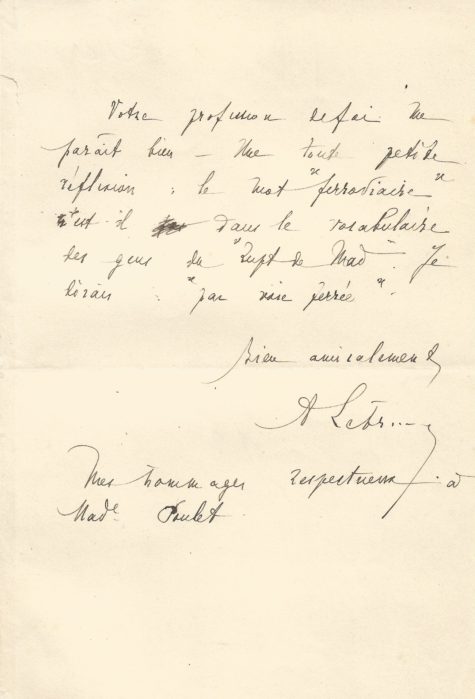 Votre profession de foi me
paraît bien — Une toute petite
réflexion : le mot "ferroviaire"
est il dans le vocabulaire
des gens du "Rupt de Mad". Je
dirais : "par voie ferrée".
Bien amicalement
A Lebrun
Mes hommages respectueux à
Made Poulet